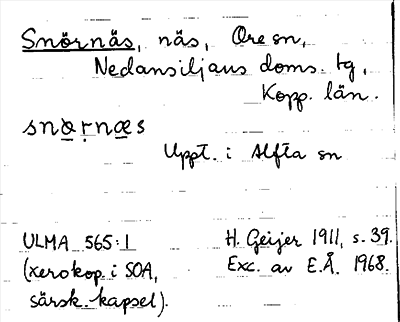 Snörnäs, näs, Ore sn,
Nedansiljans doms. tg,
Kopp. län.
snø̱ṛnæ̱s
Uppt. i Alfta sn
ULMA 565:1 H. Geijer 1911, s. 39.
(xerokop. i SOA, Exc. av E.Å. 1968.
särsk. kapsel).